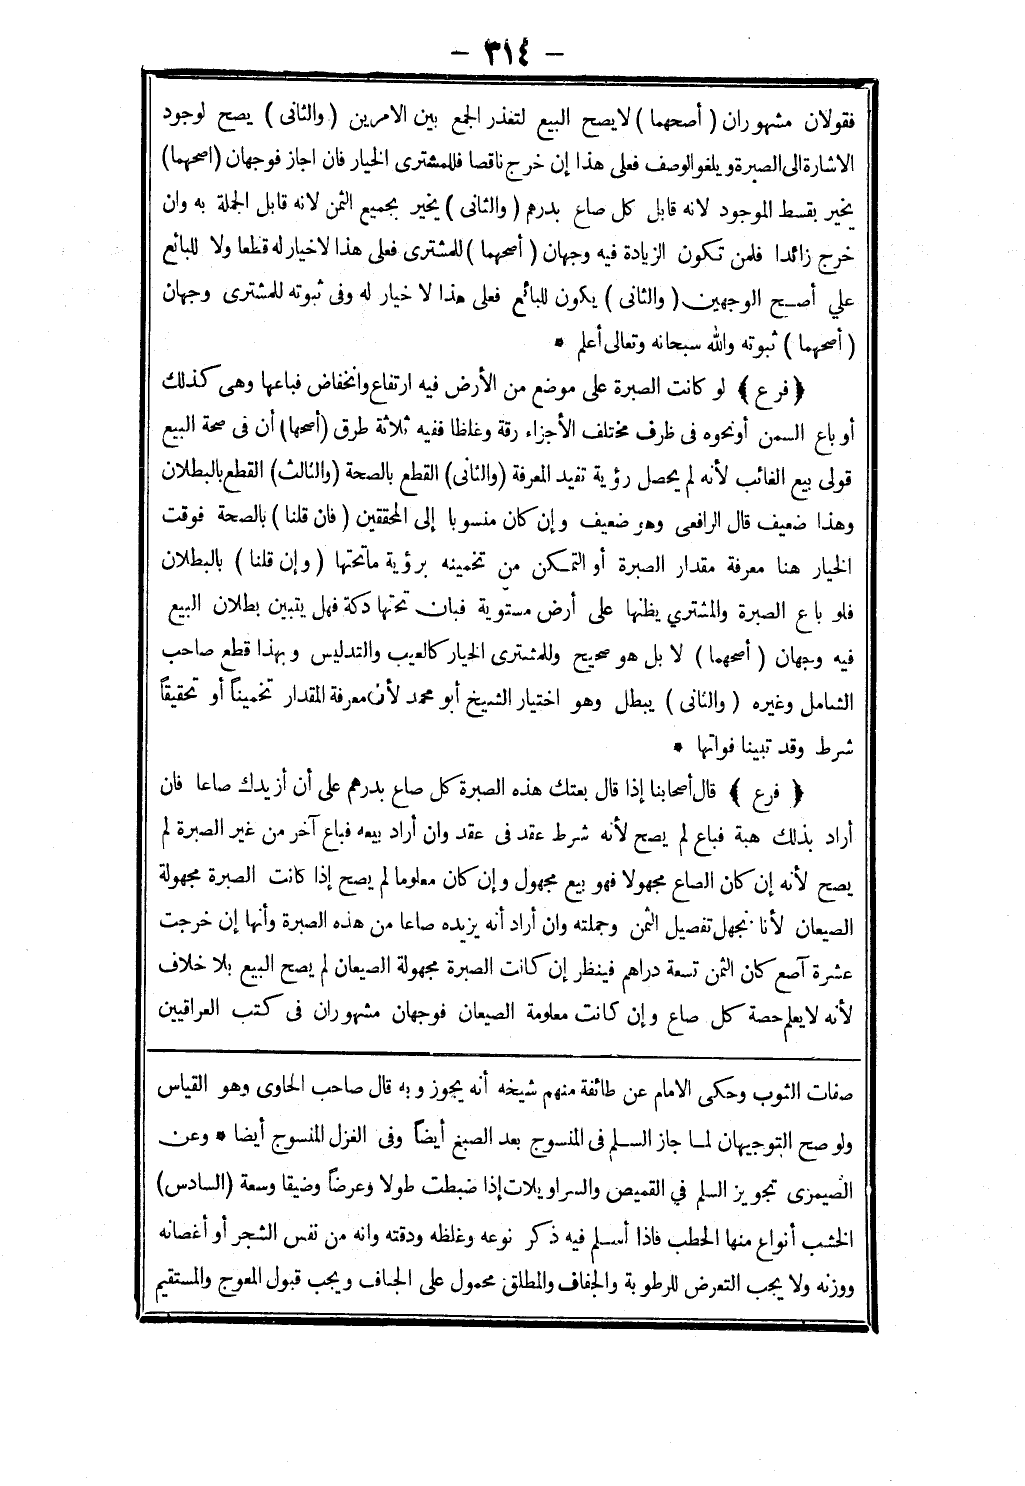 - ٣١٤ -
فقولان مشهوران ( أصحهما ) لا يصح البيع لتعذر الجمع بين الامرين ( والثانى ) يصح لوجود
الاشارة الى الصبرة ويلغو الوصف فعلى هذا إن خرج ناقصا فللمشترى الخيار فان اجاز فوجهان (اصحهما)
يخير بقسط الموجود لانه قابل كل صاع بدرهم ( والثانى ) يخير بجميع الثمن لانه قابل الجملة به وان
خرج زائدا فلمن تكون الزيادة فيه وجهان ( أصحهما ) للمشترى فعلى هذا لاخيار له قطعا ولا للبائع
علي أصح الوجهين ( والثانى ) يكون للبائع فعلى هذا لا خيار له وفى ثبوته للمشترى وجهان
( أصحهما ) ثبوته والله سبحانه وتعالى أعلم *
﴿ فرع ﴾ لو كانت الصبرة على موضع من الأرض فيه ارتفاع وانخفاض فباعها وهى كذلك
أو باع السمن أو نحوه فى ظرف مختلف الأجزاء رقة وغلظا ففيه ثلاثة طرق (أصحها) أن فى صحة البيع
قولى بيع الغائب لأنه لم يحصل رؤية تفيد المعرفة (والثانى) القطع بالصحة (والثالث) القطع بالبطلان
وهذا ضعيف قال الرافعى وهو ضعيف وإن كان منسوبا إلى المحققين ( فان قلنا ) بالصحة فوقت
الخيار هنا معرفة مقدار الصبرة أو التمكن من تخمينه برؤية ماتحتها ( وإن قلنا ) بالبطلان
فلو باع الصبرة والمشتري يظنها على أرض مستوية فبان تحتها دكة فهل يتبين بطلان البيع
فيه وجهان ( أصحهما ) لا بل هو صحيح وللمشترى الخيار كالعيب والتدليس وبهذا قطع صاحب
الشامل وغيره ( والثانى ) يبطل وهو اختيار الشيخ أبو محمد لأن معرفة المقدار تخميناً أو تحقيقاً
شرط وقد تبينا فواتها *
﴿ فرع ﴾ قال أصحابنا إذا قال بعتك هذه الصبرة كل صاع بدرهم على أن أزيدك صاعا فان
أراد بذلك هبة فباع لم يصح لأنه شرط عقد فى عقد وان أراد بيعه فباع آخر من غير الصبرة لم
يصح لأنه إن كان الصاع مجهولا فهو بيع مجهول وإن كان معلوما لم يصح إذا كانت الصبرة مجهولة
الصيعان لأنا نجهل تفصيل الثمن وجملته وان أراد أنه يزيده صاعا من هذه الصبرة وأنها إن خرجت
عشرة آصع كان الثمن تسعة دراهم فينظر إن كانت الصبرة مجهولة الصيعان لم يصح البيع بلا خلاف
لأنه لا يعلم حصة كل صاع وإن كانت معلومة الصيعان فوجهان مشهوران فى كتب العراقيين
صفات الثوب وحكى الامام عن طائفة منهم شيخه أنه يجوز وبه قال صاحب الحاوى وهو القياس
ولو صح التوجيهان لما جاز السلم فى المنسوج بعد الصبغ أيضاً وفى الغزل المنسوج أيضا * وعن
الصيمرى تجويز السلم في القميص والسراويلات إذا ضبطت طولا وعرضاً وضيقا وسعة (السادس)
الخشب أنواع منها الحطب فاذا أسلم فيه ذكر نوعه وغلظه ودقته وانه من نفس الشجر أو أغصانه
ووزنه ولا يجب التعرض للرطوبة والجفاف والمطلق محمول على الجاف ويجب قبول المعوج والمستقيم